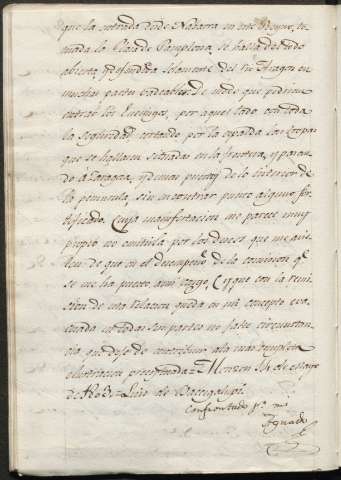 que la entrada desde Navarra en este Reyno, to
mada la Plaza de Pamplona, se halla del todo
abierta, y defendida solamente del rio Aragon en
muchas partes vadeable: de modo que podrian
entrar los Enemigos, por aquel lado con toda
la seguridad, cortando por la espalda las tropas
que se hallasen situadas en la frontera, y pasando
a Zaragoza, y demas puntos de lo interior de
la peninsula, sin encontrar punto alguno for
tificado. Cuya manifestacion me parece muy
propio no omitirla por los deseos que me asis
ten de que en el desempeño de la comision qe.
se me ha puesto a mi cargo, Creyendo que con la remi
sion de esta relacion queda en mi concepto eva
cuada en todas sus partes no falte circunstan
cia que deje de contribuir a la mas completa
Monzon 14 de
de Luis de Baccigalupi.
Confrontado pr. mi
Aguado